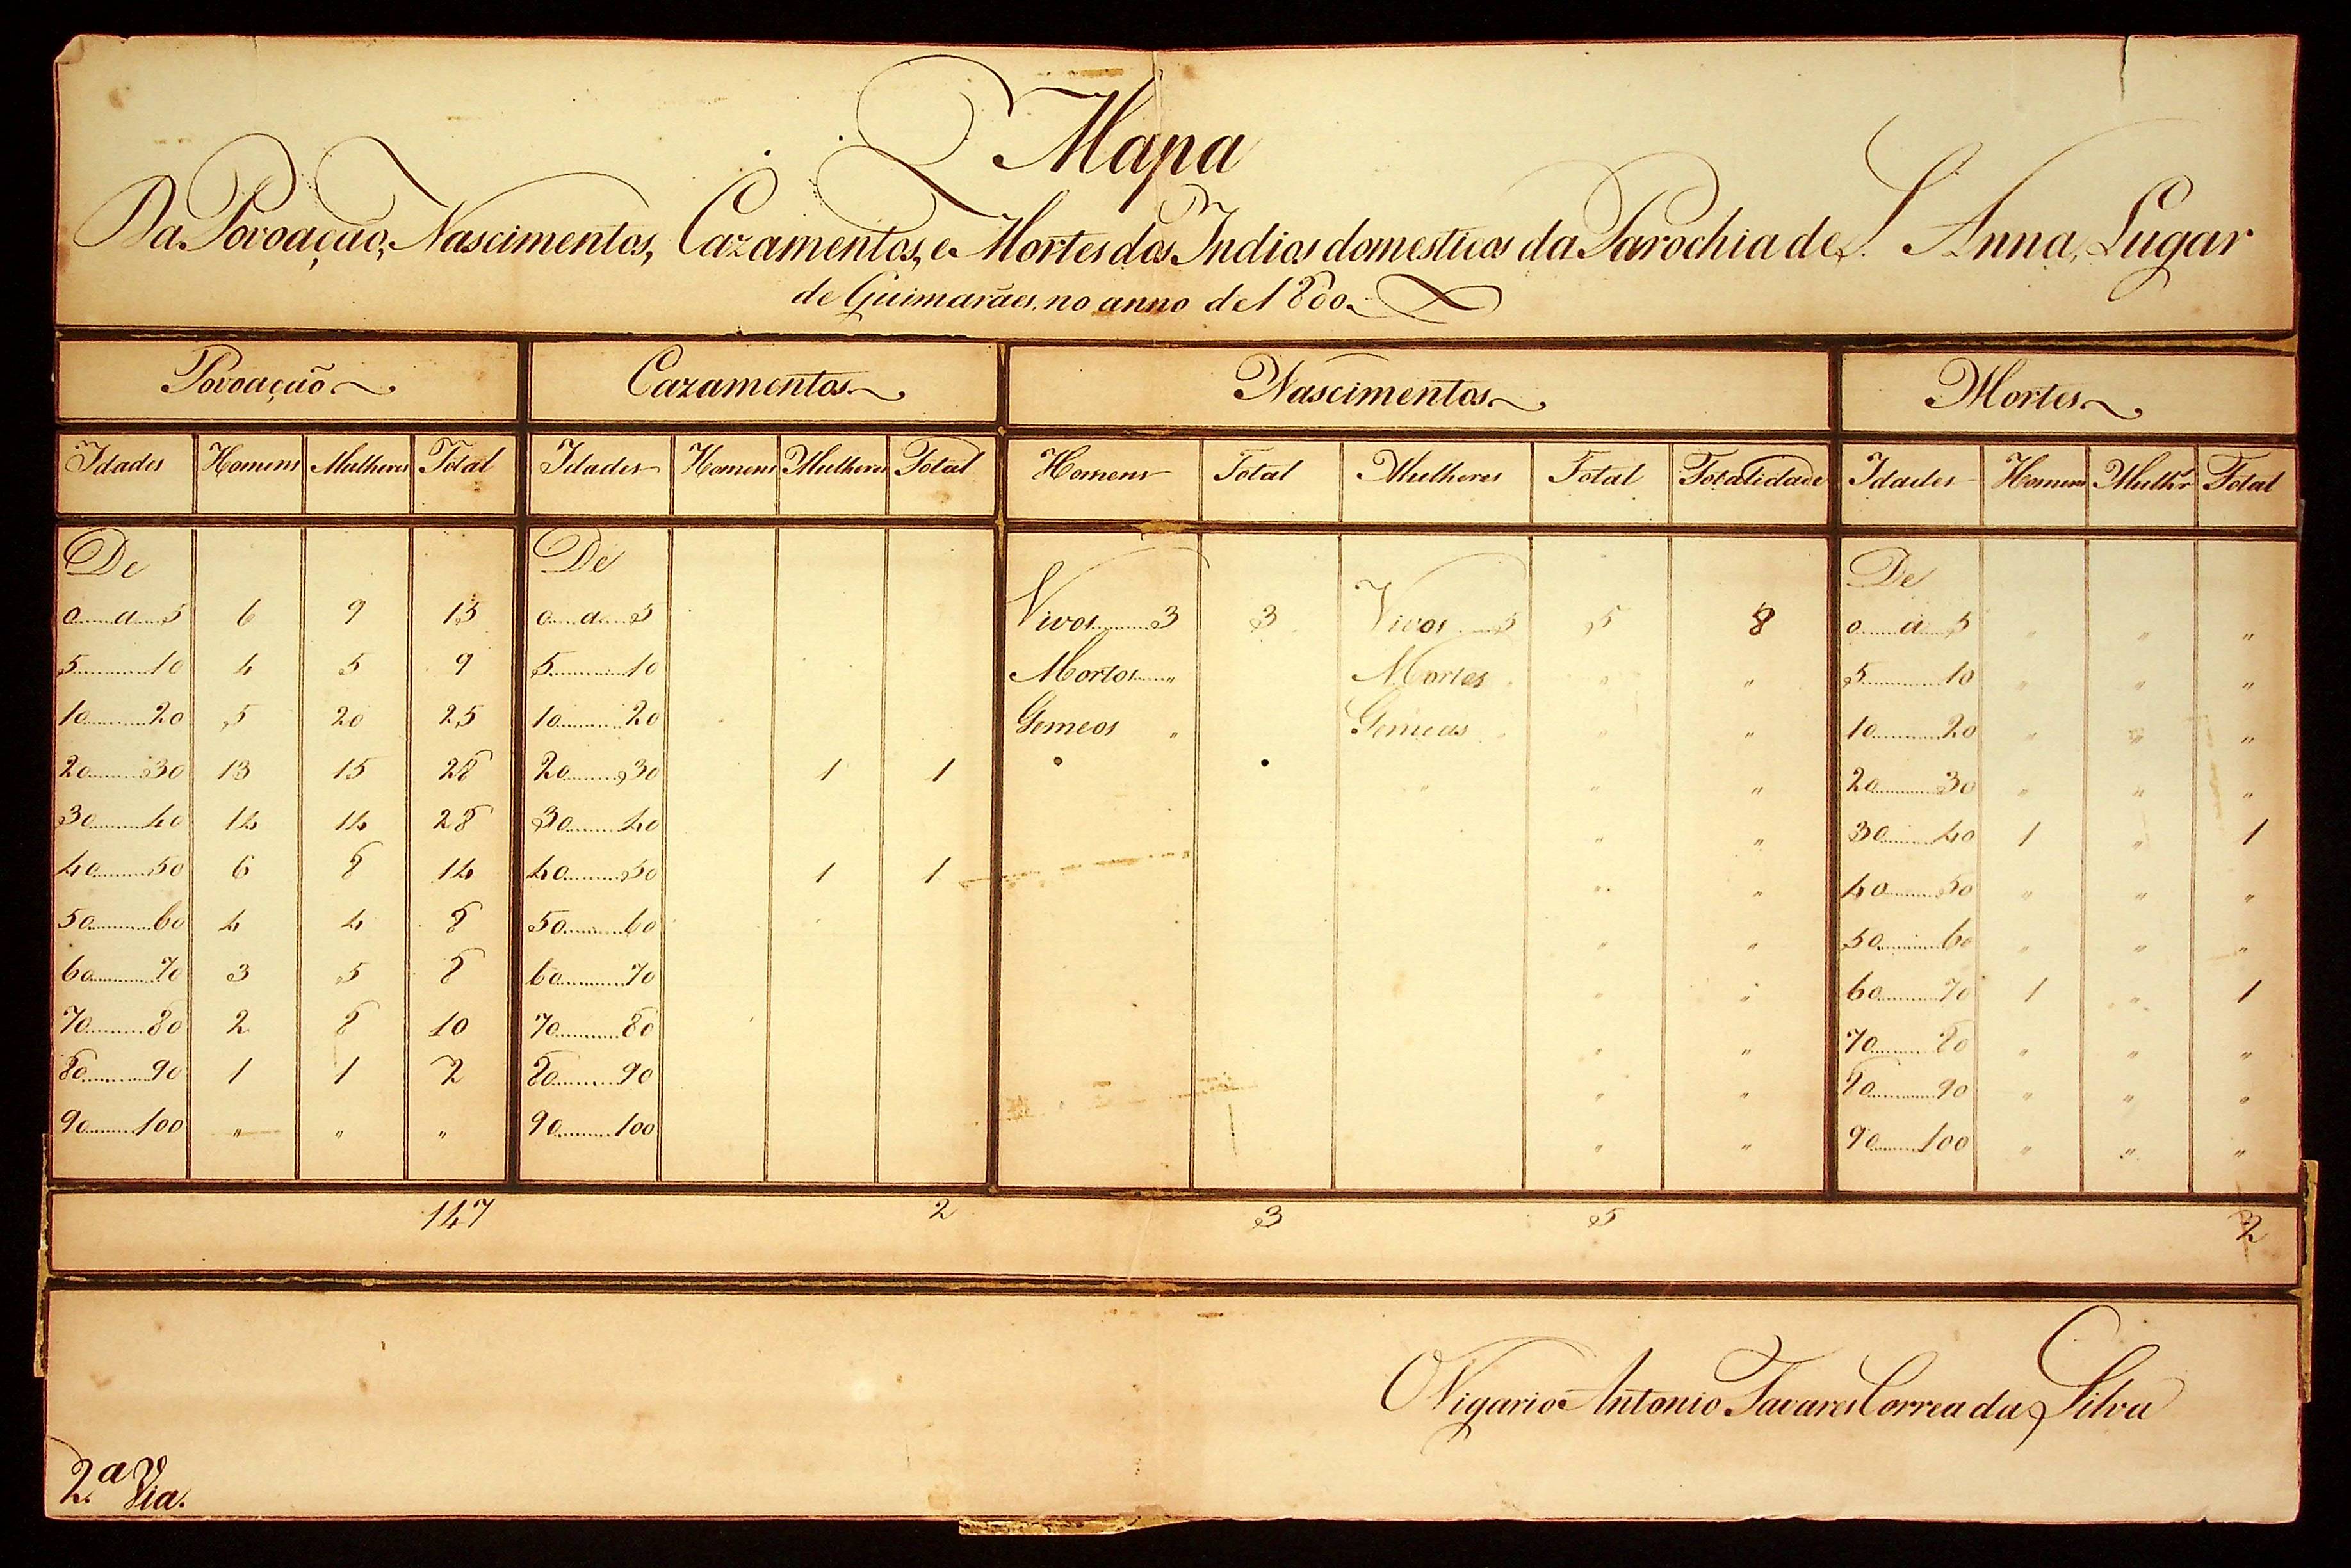 Mapa
Da Povoação, Nascimentos, Cazamentos, e Mortes dos Indios domesticos da Parochia de S. Anna, Lugar
de Guimarães, no anno de 1800.
Povoação Cazamentos Nascimentos Mortes
Idades Homens Mulheres Total Idades Homens Mulheres Total Homens Total Mulheres Total Totalidade Idades Homens Mulhr Total
De De De
0 a 5 6 9 15 0 a 5 Vivos 3 3 Vivos 5 5 8 0 a 5 " " "
5 10 4 5 9 5 10 Mortos " Mortas " " " 5 10 " " "
10 20 5 20 25 10 20 Gemeos " Gemeas " " " 10 20 " " "
20 30 13 15 28 20 30 1 1 " " " 20 30 " " "
30 40 14 14 28 30 40 " " 30 40 1 " 1
40 50 6 8 14 40 50 1 1 " " 40 50 " " "
50 60 4 4 8 50 60 " " 50 60 " " "
60 70 3 5 8 60 70 " " 60 70 1 " 1
70 80 2 8 10 70 80 " " 70 80 " " "
80 90 1 1 2 80 90 " " 80 90 " " "
90 100 " " " 90 100 " " 90 100 " " "
147 2 3 5 2
O Vigario Antonio Tavares Correa da Silva
2.a Via.